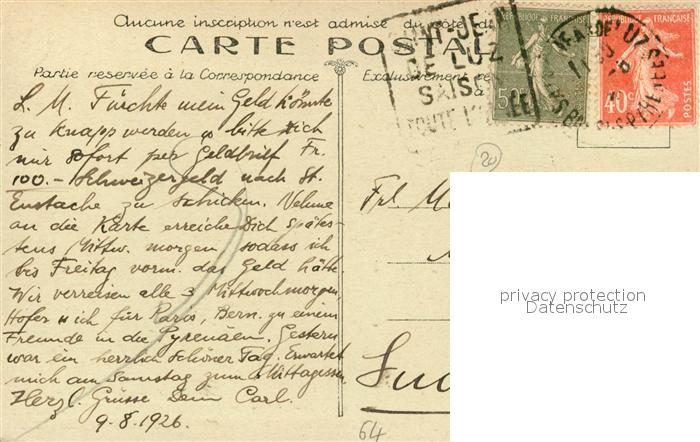 Aucune inscription n'est admise du côté d
CARTE POSTAL
Partie réservée à la Correspondance
Exclusivement ré
à
DE LUZ
SAIS
TOUTE L'
RÉPUBLIQUE FRANÇAISE
40c
POSTES
L. M. Fürchte mein Geld könnte
zu knapp werden u bitte Dich
mir sofort per Geldbrief Fr.
100.- Schweizergeld nach St.
Eustache zu schicken. Nehme
an die Karte erreiche Dich späte-
stens Mittw. morgen sodass ich
bis Freitag vorm. das Geld hätte.
Wir verreisen alle 3 Mittwochmorgen,
Hofer u ich für Paris, Bern. zu einem
Freunde in die Pyrenäen. Gestern
war ein herrlich schöner Tag. Erwartet
mich am Samstag zum Mittagessen
Herzl. Grüsse Dein Carl.
9.8.1926.
20
Frl. M
64
privacy protection
Datenschutz